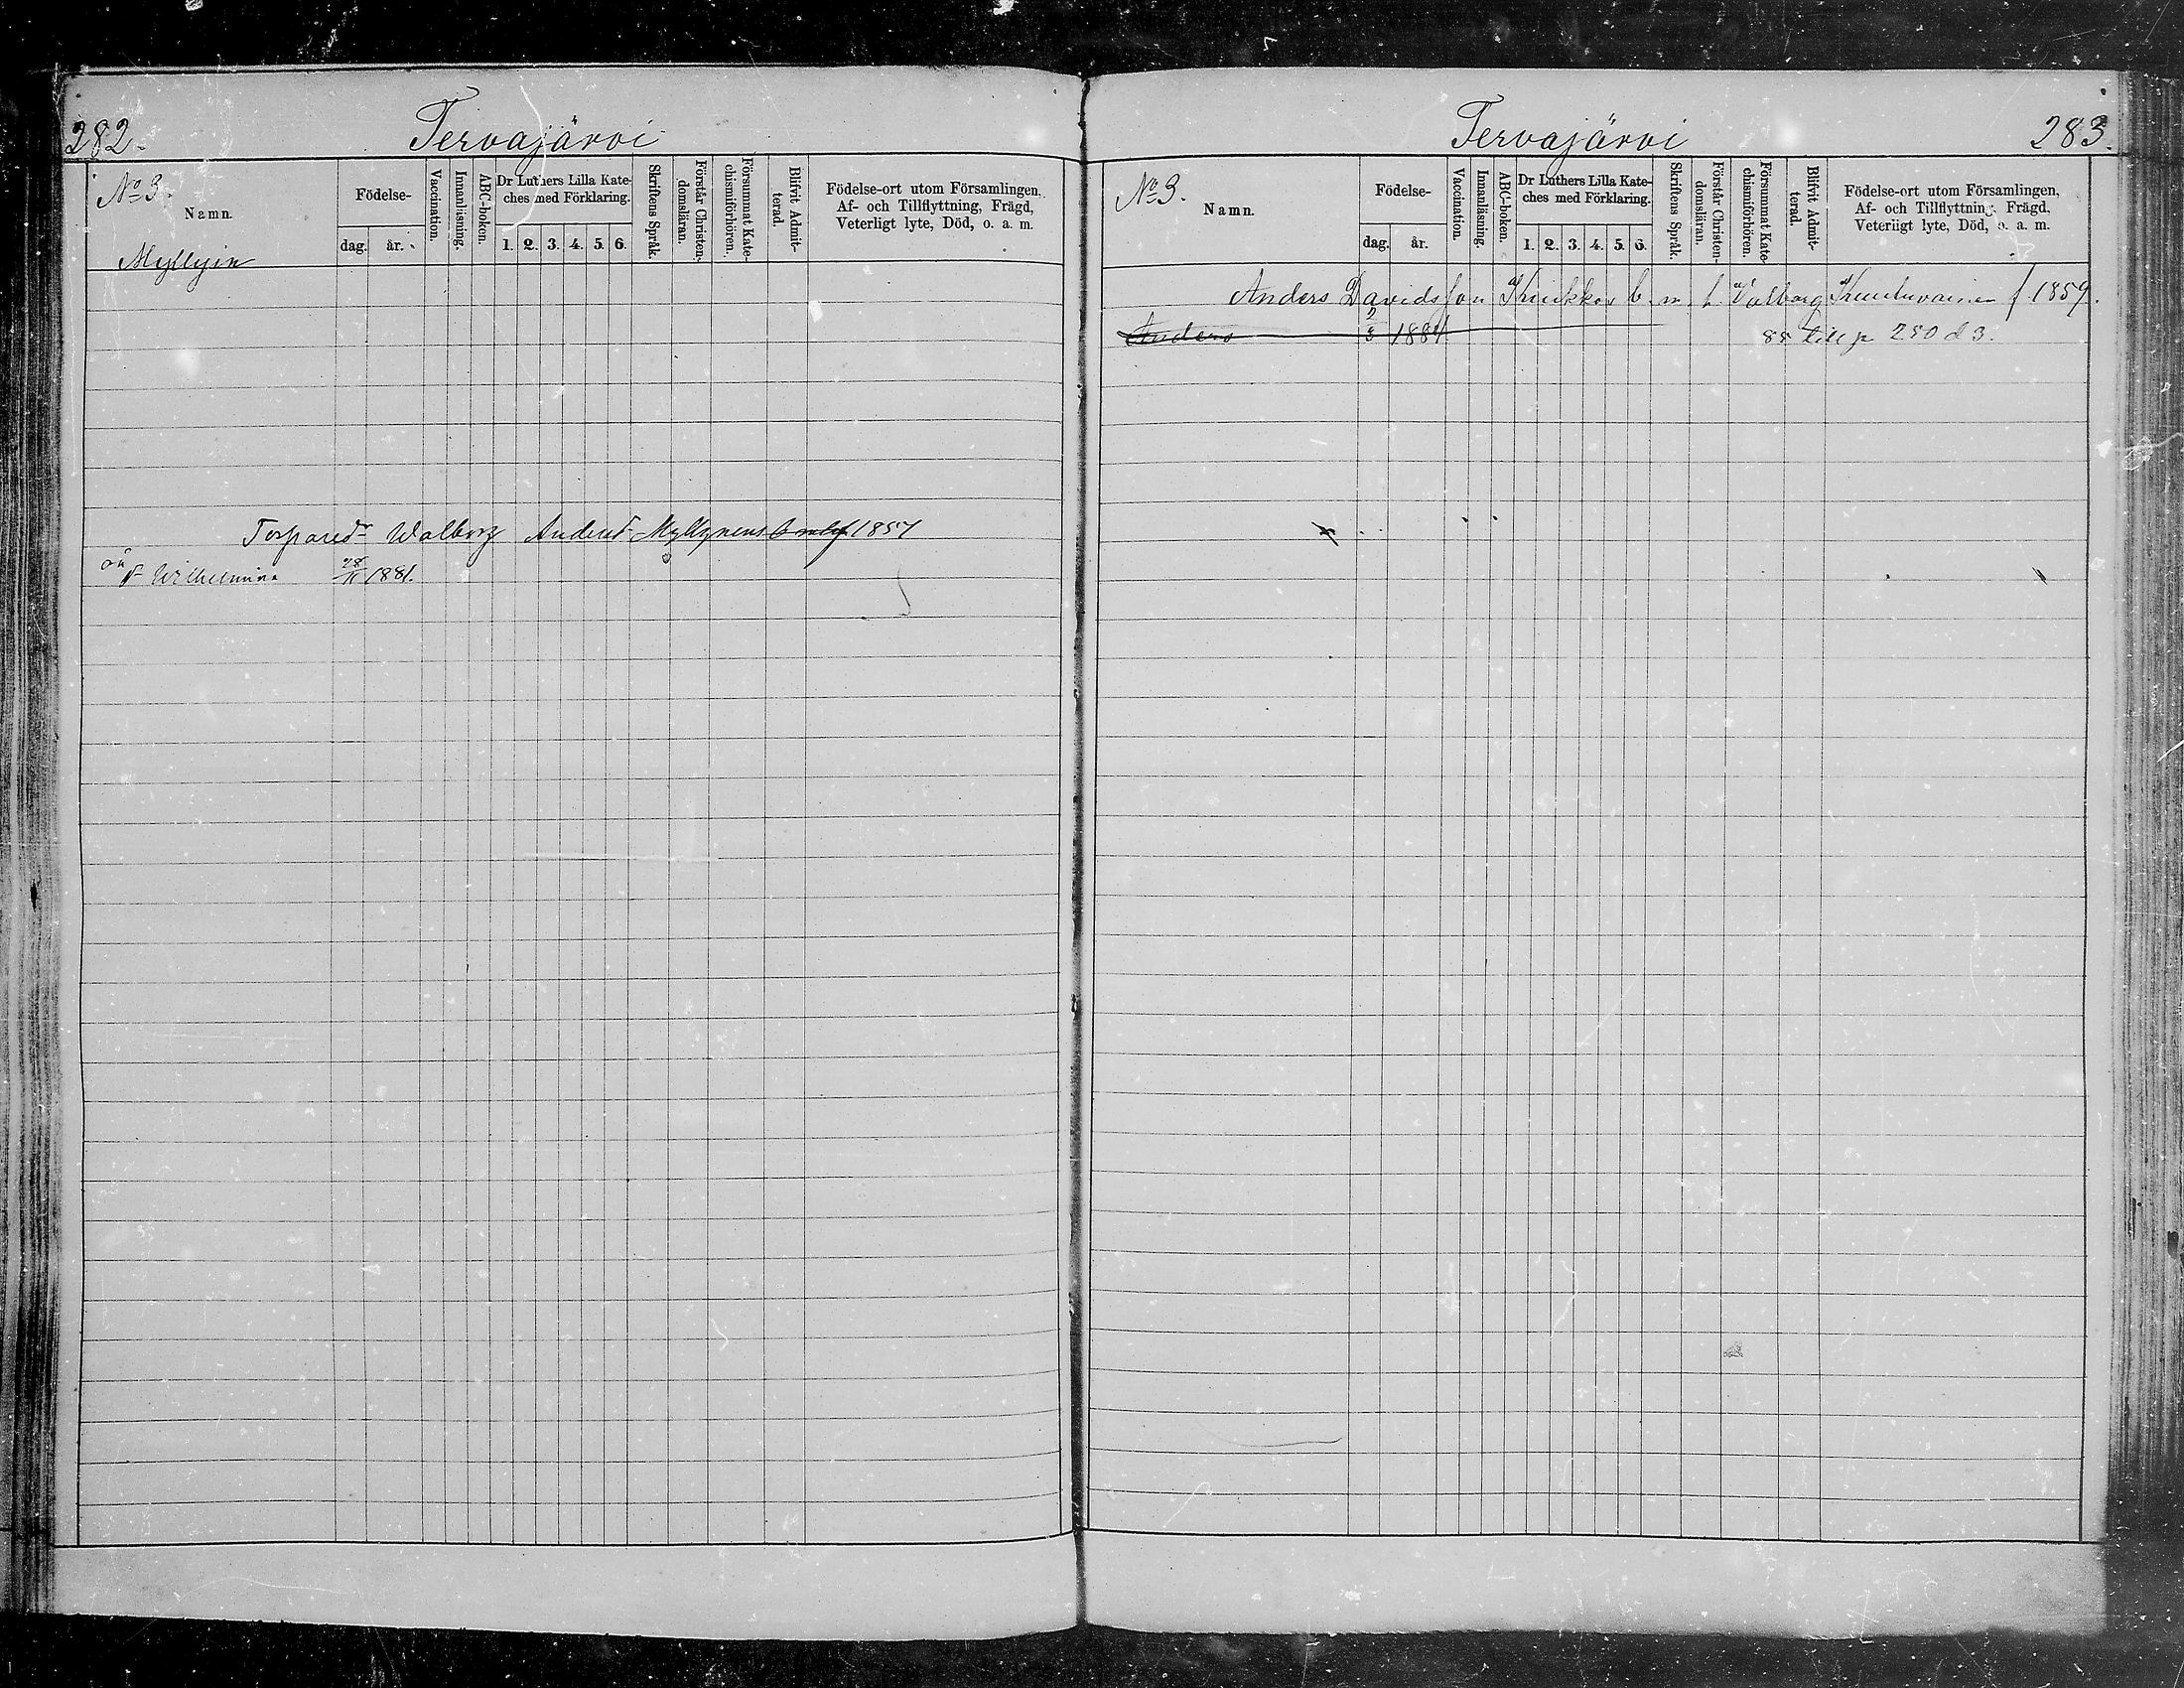 282.
Tervajärvi
No 3.
Namn.
Myllyin
Födelse-
dag. år.
Vaccination.
Innanläsning.
ABC-boken.
Dr Luthers Lilla Kate-
ches med Förklaring.
1. 2. 3. 4. 5. 6.
Skriftens Språk.
Förstår Christen-
domsläran.
Försummat Kate-
chismiförhören.
Blifvit Admit-
terad.
Födelse-ort utom Församlingen.
Af- och Tillflyttning, Frägd,
Veterligt lyte, Död, o. a. m.
Walborg Andersd Myllynens 1857
oä
Wilhelmina 28/11 1881.
Tervajärvi
283.
No 3.
Namn.
Födelse-
dag. år.
Vaccination.
Innanläsning.
ABC-boken.
Dr Luthers Lilla Kate-
ches med Förklaring.
1. 2. 3. 4. 5. 6.
Skriftens Språk.
Förstår Christen-
domsläran.
Försummat Kate-
chismiförhören.
Blifvit Admit-
terad.
Födelse-ort utom Församlingen,
Af- och Tillflyttning, Frägd,
Veterligt lyte, Död, o. a. m.
Anders Davidsson b. m. Valborg f. 1859.
Anders 1884 85 till p 250 d 3.